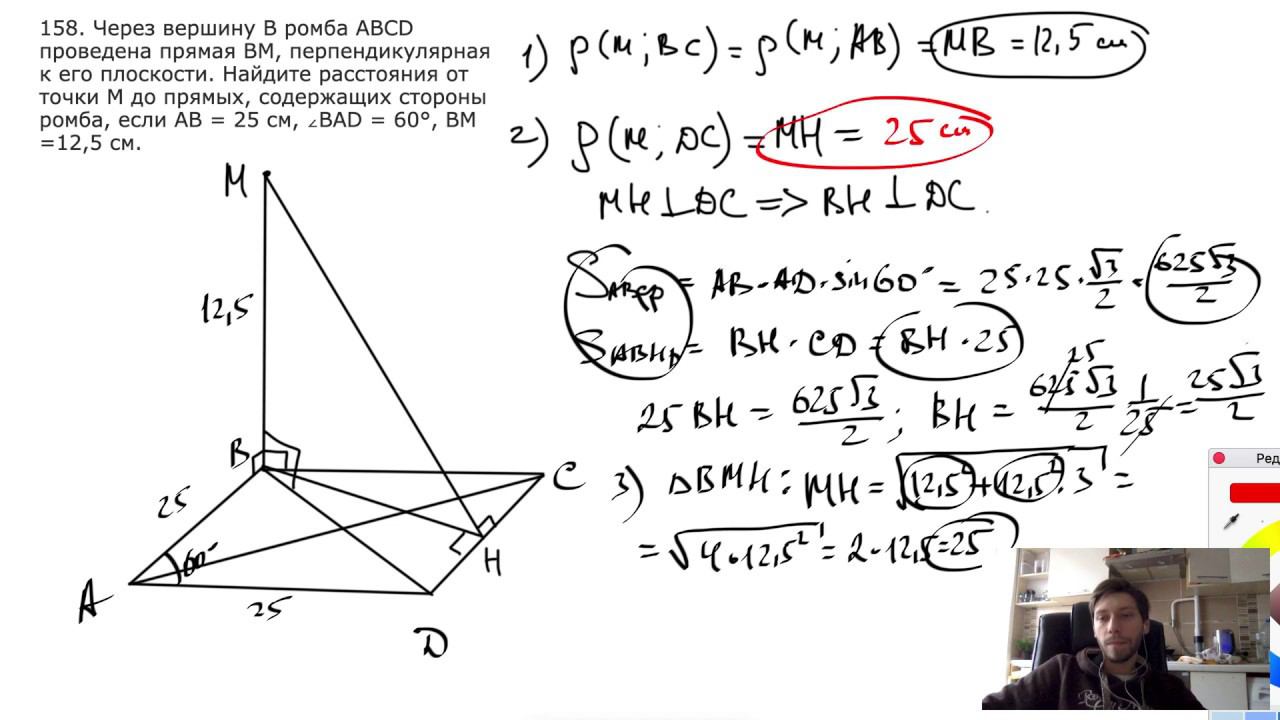 158. Через вершину В ромба ABCD
проведена прямая ВМ, перпендикулярная
к его плоскости. Найдите расстояния от
точки М до прямых, содержащих стороны
ромба, если АВ = 25 см, ∠BAD = 60°, ВМ
=12,5 см.
1) ρ(M; BC) = ρ(M; AB) = MB = 12,5 см
2) ρ(M; DC) = MH = 25 см
MH ⊥ DC => BH ⊥ DC.
S ABCD = AB · AD · sin 60° = 25 · 25 · √3/2 = 625√3/2
S ABHD = BH · CD = BH · 25
25 BH = 625√3/2 ; BH = 625√3/2 · 1/25 = 25√3/2
25
3) ΔBMH : MH = √(12,5² + 12,5² · 3) =
= √(4 · 12,5²) = 2 · 12,5 = 25
M
12,5
B
C
25
60°
H
A
25
D
Ред